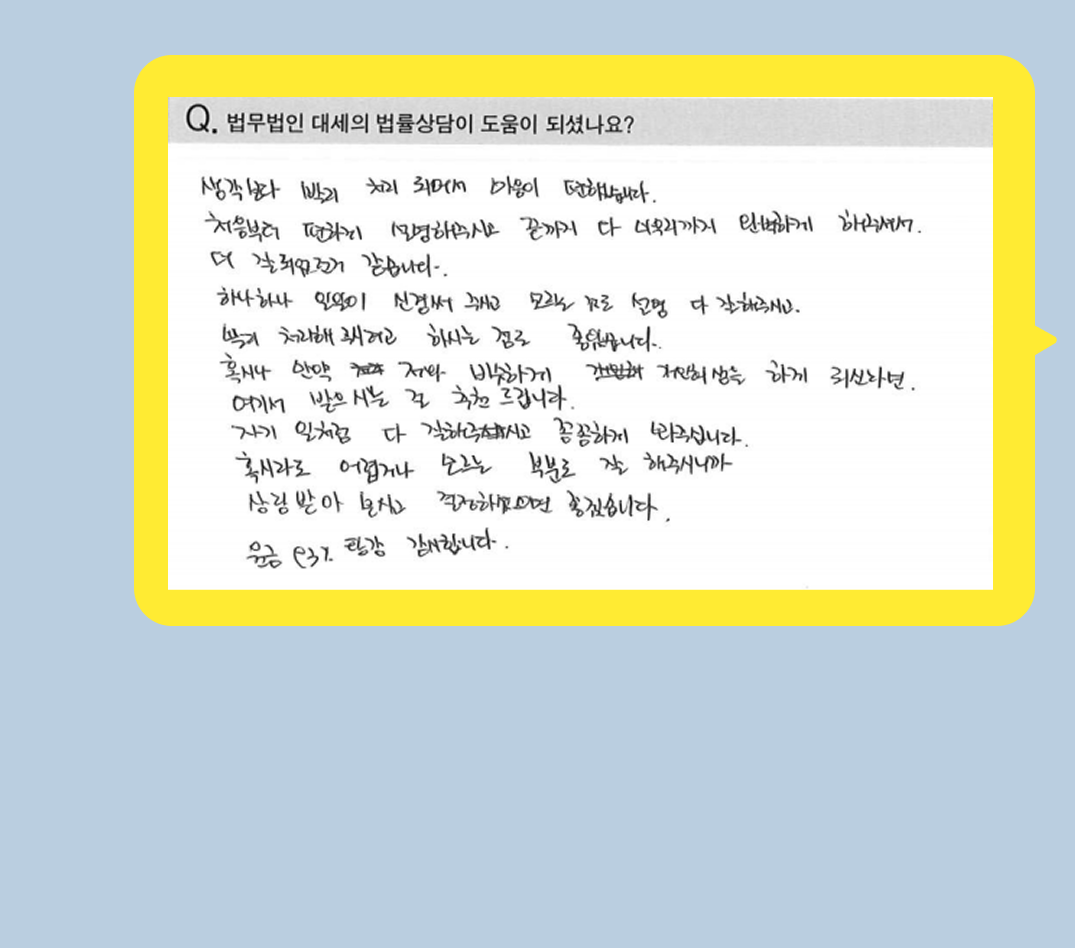 Q. 법무법인 대세의 법률상담이 도움이 되셨나요?
생각보다 빨리 처리 되어서 마음이 편했습니다.
처음부터 편하게 설명해주시고 끝까지 다 마무리까지 완벽하게 해주셔서.
더 잘되었던거 같습니다.
하나하나 일일이 신경써 주시고 모르는 것도 설명 다 잘해주시고.
빨리 처리해 주시려고 하시는 점도 좋았습니다.
혹시나 만약 저와 비슷하게 개인회생을 하게 되신다면.
여기서 받으시는 걸 추천 드립니다.
자기 일처럼 다 잘해주시고 꼼꼼하게 봐주십니다.
혹시라도 어렵거나 모르는 부분도 잘 해주시니까
상담 받아 보시고 결정하셨으면 좋겠습니다.
감사합니다.